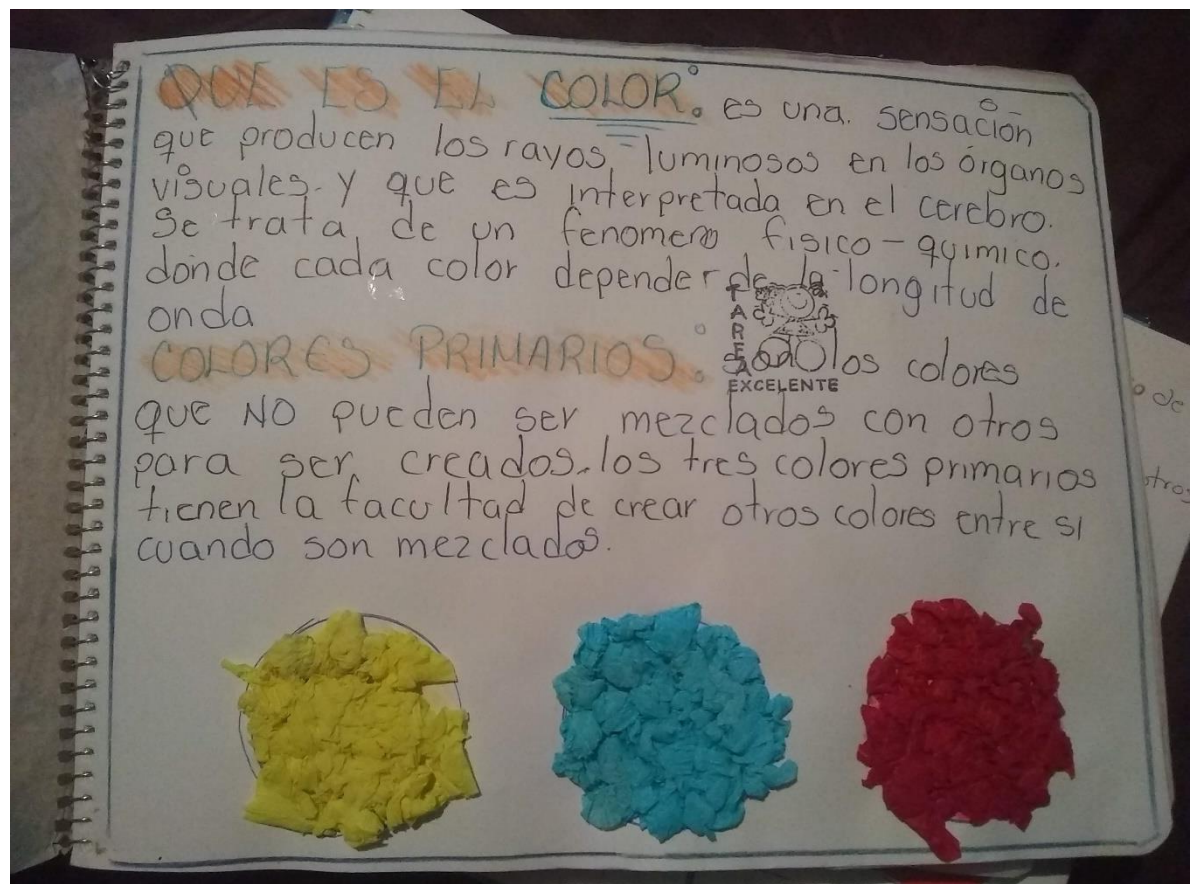 QUE ES EL COLOR: es una. sensación
que producen los rayos luminosos en los órganos
visuales. y que es interpretada en el cerebro.
Se trata de un fenomeno fisico-quimico.
donde cada color depender de la longitud de
onda
TAREA
EXCELENTE
COLORES PRIMARIOS: son los colores
que NO pueden ser mezclados con otros
para ser creados. los tres colores primarios
tienen la facultad de crear otros colores entre si
cuando son mezclados.
o de
otros